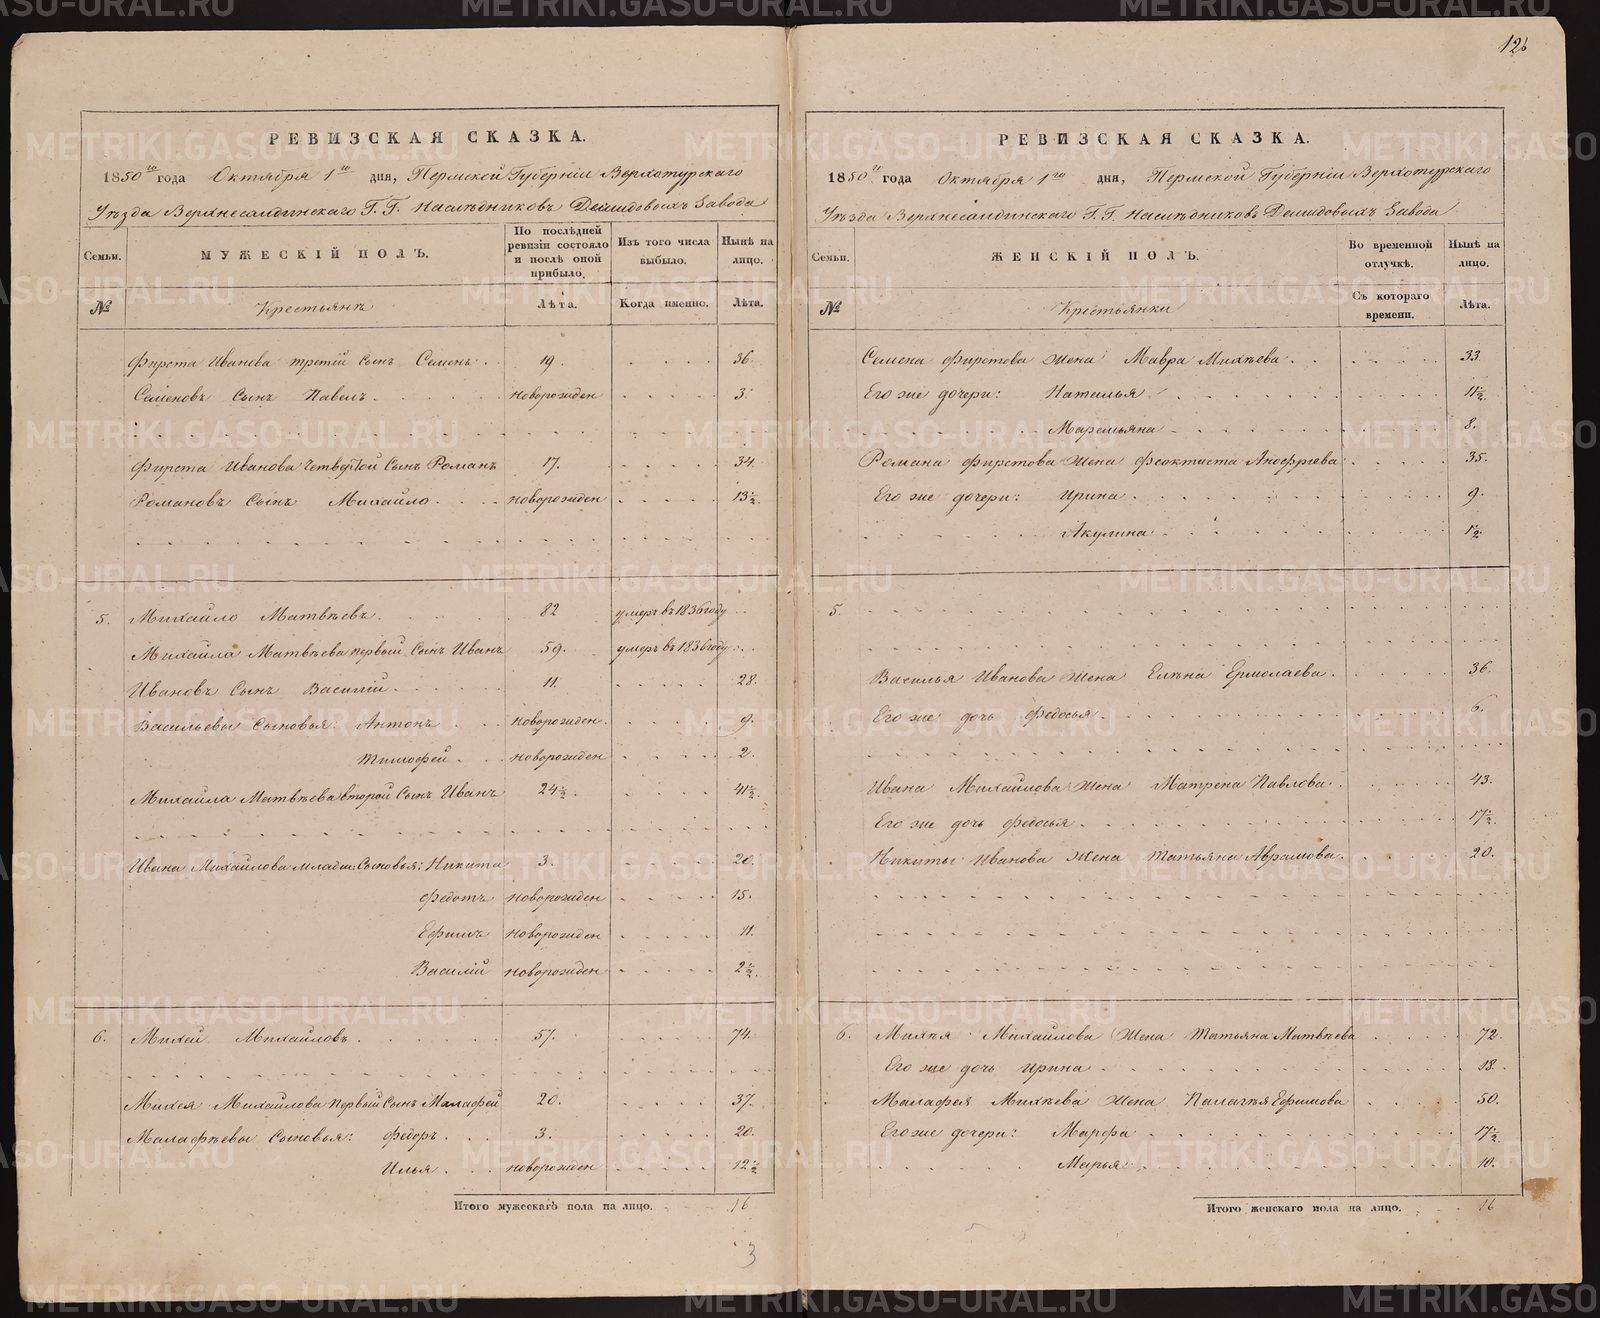 126
РЕВИЗСКАЯ СКАЗКА.
1850го года Октября 1го дня, Пермской Губерніи Верхотурскаго
Уѣзда Верхнесалдинскаго Г.Г. Наслѣдниковъ Демидовыхъ Завода
Семьи. МУЖЕСКІЙ ПОЛЪ. По послѣдней ревизіи состояло и послѣ оной прибыло. Изъ того числа выбыло. Нынѣ на лицо.
№ Крестьянъ Лѣта. Когда именно. Лѣта.
Фирста Иванова третій сынъ Семенъ 19. 36.
Семеновъ сынъ Павелъ новорожден 3.
Фирста Иванова четвертой сынъ Романъ 17. 34.
Романовъ сынъ Михайло новорожден 13½.
5. Михайло Матвѣевъ 82 умеръ въ 1836 году
Михайла Матвѣева первый сынъ Иванъ 59. умеръ въ 1836 году
Ивановъ сынъ Василій 11. 28.
Васильевы сыновья: Антонъ новорожден. 9.
Тимофей новорожден 2.
Михайла Матвѣева второй сынъ Иванъ 24½. 41½.
Ивана Михайлова младш. сыновья: Никита 3. 20.
Федотъ новорожден 15.
Ефимъ новорожден 11.
Василій новорожден 2½.
6. Михей Михайловъ 57. 74.
Михея Михайлова первый сынъ Малафей 20. 37.
Малафѣевы сыновья: Федоръ 3. 20.
Илья новорожден 12½
Итого мужескаго пола на лицо. 16
3
РЕВИЗСКАЯ СКАЗКА.
1850го года Октября 1го дня, Пермской Губерніи Верхотурскаго
Уѣзда Верхнесалдинскаго Г.Г. Наслѣдниковъ Демидовыхъ Завода
Семьи. ЖЕНСКІЙ ПОЛЪ. Во временной отлучкѣ. Нынѣ на лицо.
№ Крестьянки Съ котораго времени. Лѣта.
Семена Фирстова жена Мавра Михѣева 33.
Его же дочери: Наталья 11½.
Маремьяна 8.
Романа Фирстова жена Феоктиста Анофріева 35.
Его же дочери: Ирина 9.
Акулина 1½.
5.
Василья Иванова жена Елѣна Ермолаева. 36.
Его же дочь Федосья. 6.
Ивана Михайлова жена Матрена Павлова. 43.
Его же дочь Федосья. 17½.
Никиты Иванова жена Татьяна Аврамова. 20.
6. Михѣя Михайлова жена Татьяна Матвѣева 72.
Его же дочь Ирина 18.
Малафея Михѣева жена Палагѣя Ефимова 50.
Его же дочери: Марфа 17½.
Марья 10.
Итого женскаго пола на лицо. 16
METRIKI.GASO-URAL.RU